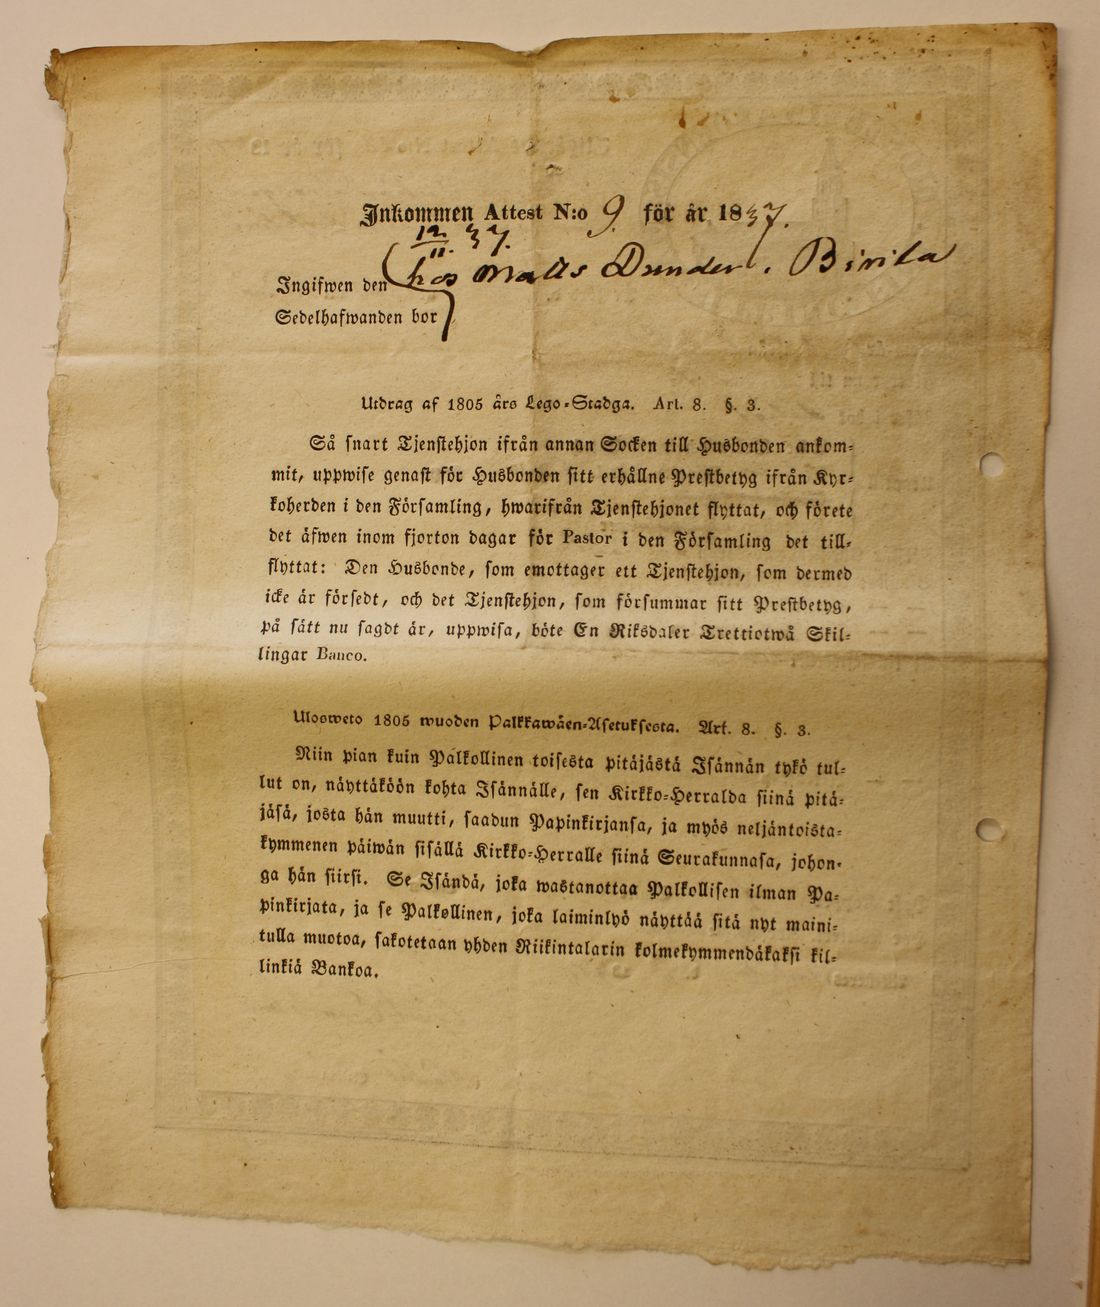 Inkommen Attest N:o 9. för år 1837.
12/11. 37.
Ingifwen den hos Matts Dunder. Birila
Sedelhafwanden bor
Utdrag af 1805 års Lego-Stadga. Art. 8. §. 3.
Så snart Tjenstehjon ifrån annan Socken till Husbonden ankom-
mit, uppwise genast för Husbonden sitt erhållne Prestbetyg ifrån Kyr-
koherden i den Församling, hwarifrån Tjenstehjonet flyttat, och förete
det äfwen inom fjorton dagar för Pastor i den Församling det till-
flyttat: Den Husbonde, som emottager ett Tjenstehjon, som dermed
icke är försedt, och det Tjenstehjon, som försummar sitt Prestbetyg,
på sätt nu sagdt är, uppwisa, böte En Riksdaler Trettiotwå Skil-
lingar Banco.
Ulosweto 1805 wuoden Palkkawäen-Asetuksesta. Art. 8. §. 3.
Niin pian kuin Palkollinen toisesta pitäjästä Isännän tykö tul-
lut on, näyttäköön kohta Isännälle, sen Kirkko-Herralda siinä pitä-
jäsä, josta hän muutti, saadun Papinkirjansa, ja myös neljäntoista-
kymmenen päiwän sisällä Kirkko-Herralle siinä Seurakunnasa, johon-
ga hän siirsi. Se Isändä, joka wastanottaa Palkollisen ilman Pa-
pinkirjata, ja se Palkollinen, joka laiminlyö näyttää sitä nyt maini-
tulla muotoa, sakotetaan yhden Riikintalarin kolmekymmendäkaksi kil-
linkiä Bankoa.